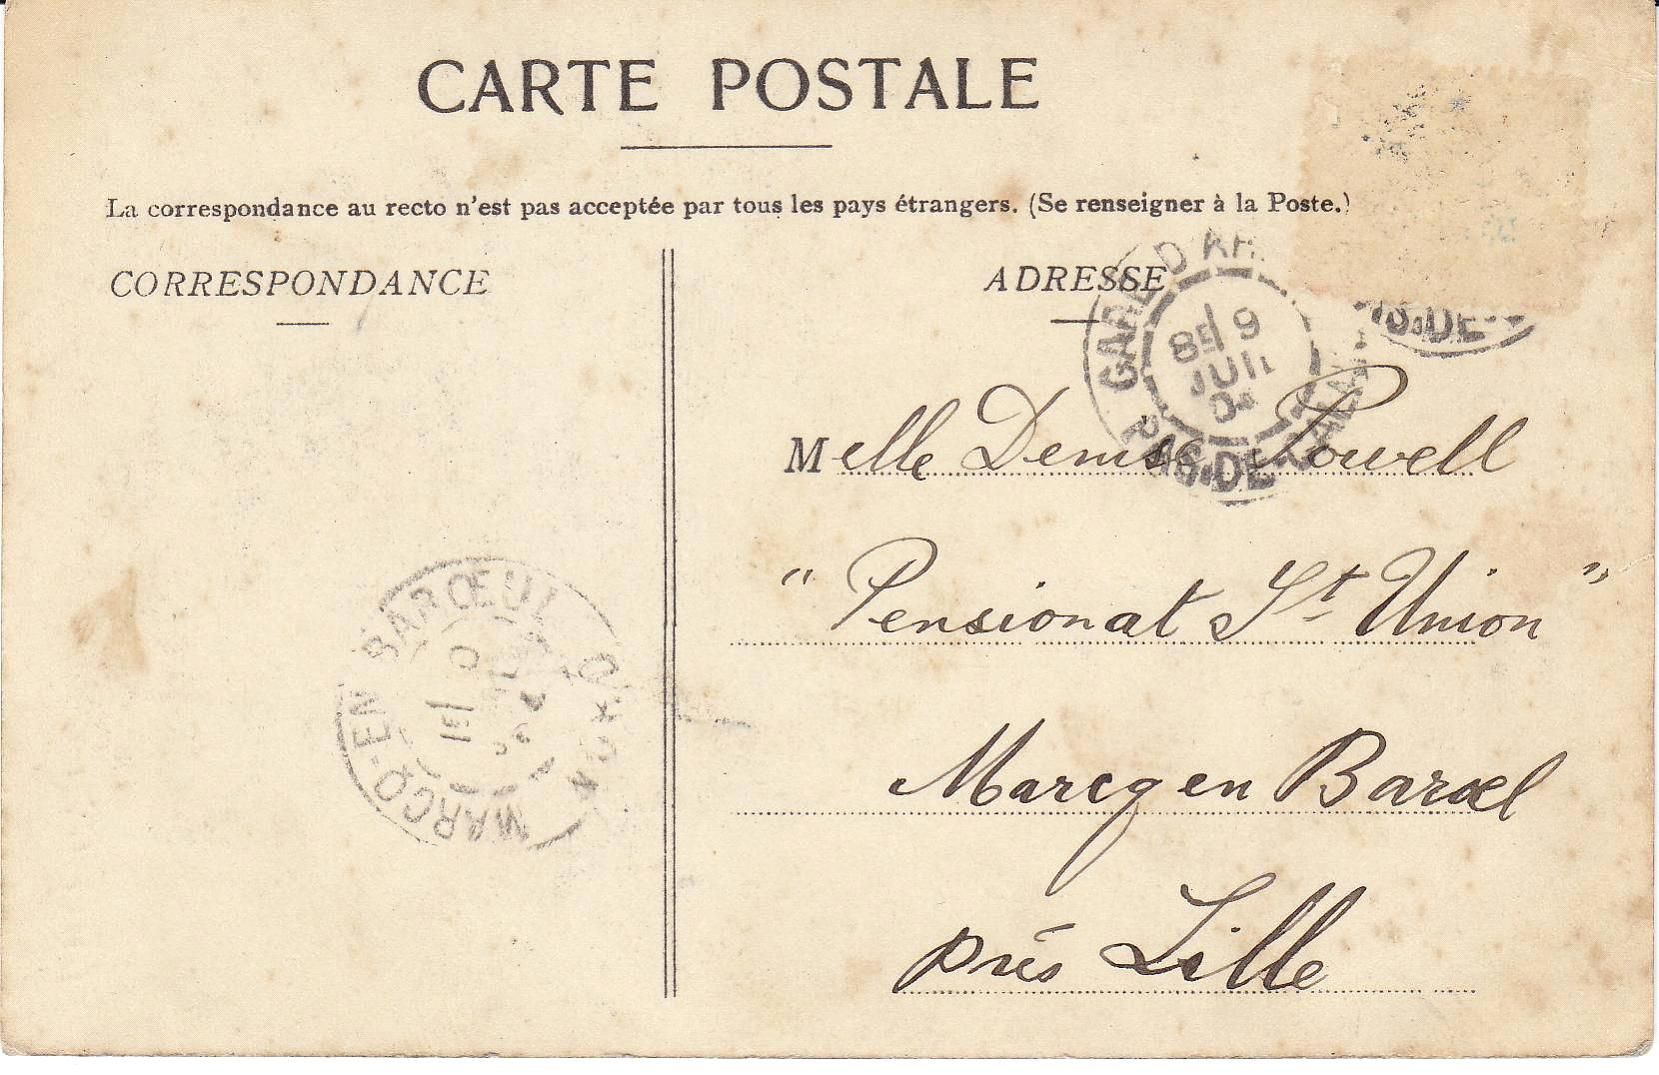 CARTE POSTALE
La correspondance au recto n'est pas acceptée par tous les pays étrangers. (Se renseigner à la Poste.)
CORRESPONDANCE
ADRESSE
GARE D'AR
8E 9
JUIL
04
PAS-DE-CALAIS
AS-DE-
Melle Denise Powell
“Pensionat St Union”
Marcq en Barœl
près Lille
MARCQ-EN-BARŒUL
NORD
1E